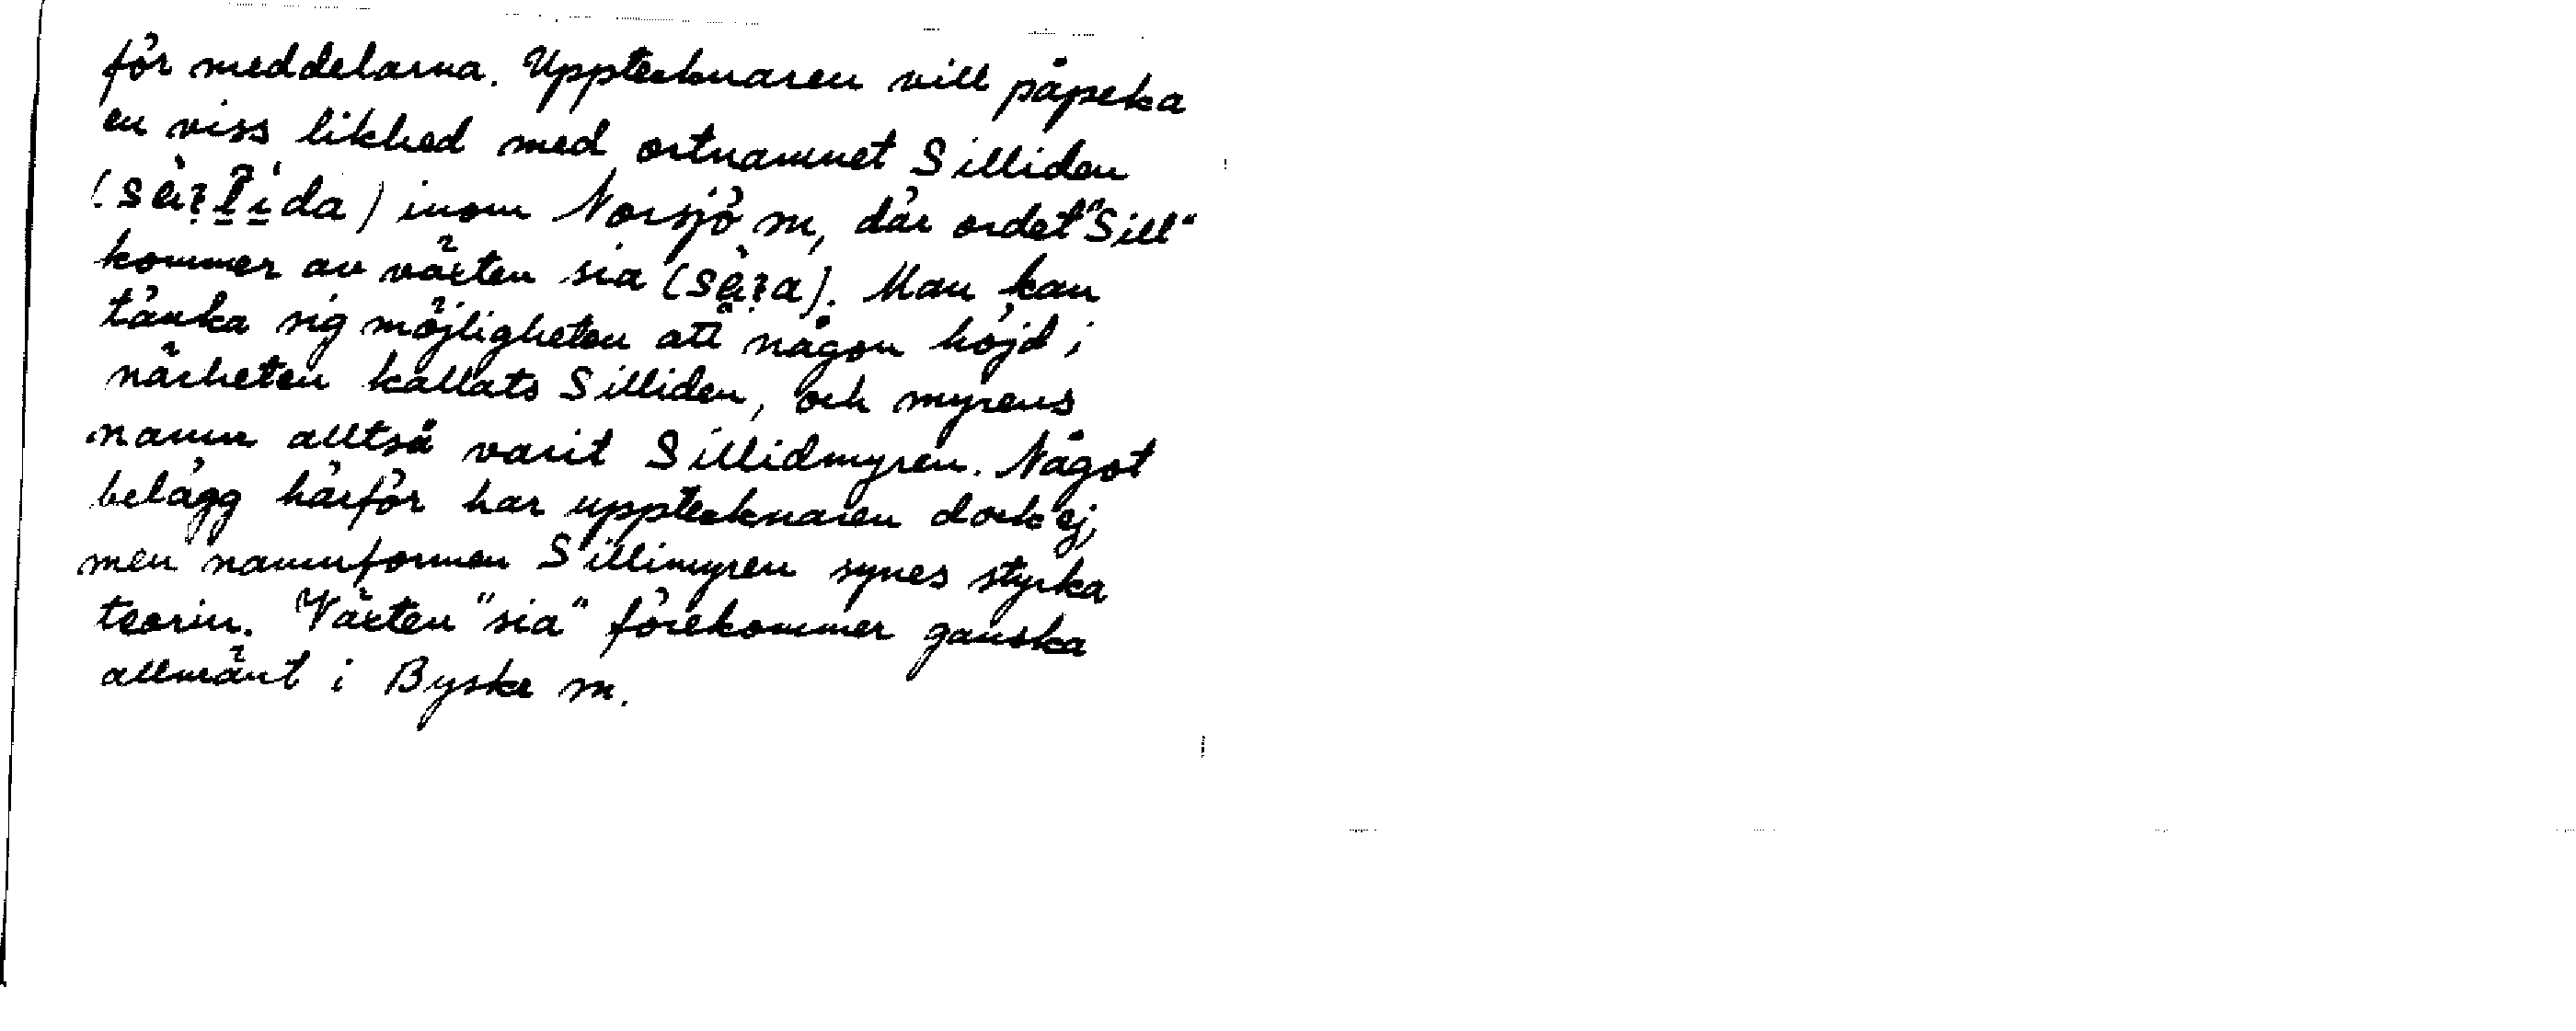 för meddelarna. Upptecknaren vill påpeka
en viss likhed med ortnamnet Silliden
inom Norsjö m, där ordet "Sill"
kommer av växten sia. Man kan
tänka sig möjligheten att någon höjd i
närheten kallats Silliden, och myrens
namn alltså varit Sillidmyren. Något
belägg härför har upptecknaren dock ej,
men namnformen Sillimyren synes styrka
teorin. Växten "sia" förekommer ganska
allmänt i Byske m.